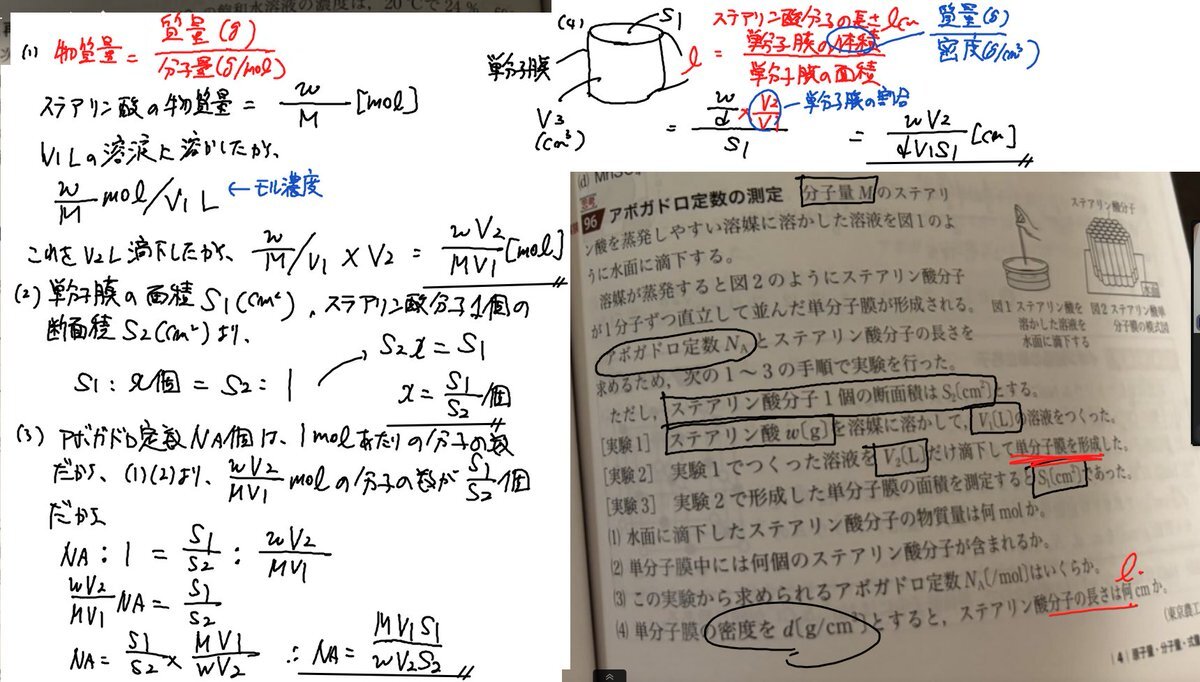 の飽和水溶液の濃度は、20℃で24%
(1) 物質量 = 質量(g) / 分子量(g/mol)
ステアリン酸の物質量 = w/M [mol]
V1Lの溶液に溶かしたから、
w/M mol/V1 L ←モル濃度
これをV2L滴下したから、 w/M / V1 × V2 = wV2/MV1 [mol]
(2) 単分子膜の面積S1(cm²)、ステアリン酸分子1個の
断面積S2(cm²)より、
S1 : x個 = S2 : 1
S2x = S1
x = S1/S2 個
(3) アボガドロ定数NA個は、1molあたりの分子の数
だから、(1)(2)より、wV2/MV1 molの分子の数がS1/S2個
だから
NA : 1 = S1/S2 : wV2/MV1
wV2/MV1 NA = S1/S2
NA = S1/S2 × MV1/wV2 ∴ NA = MV1S1/wV2S2
(4)
S1
単分子膜
l
V3
(cm³)
ステアリン酸分子の長さ l cm
= 単分子膜の体積 / 単分子膜の面積
質量(g) / 密度(g/cm³)
= w/d × V2/V1 / S1
単分子膜の割合
= wV2/dV1S1 [cm]
(d) MnSO
96 アボガドロ定数の測定 分子量Mのステアリ
ン酸を蒸発しやすい溶媒に溶かした溶液を図1のよ
うに水面に滴下する。
溶媒が蒸発すると図2のようにステアリン酸分子
が1分子ずつ直立して並んだ単分子膜が形成される。
アボガドロ定数NAとステアリン酸分子の長さを
求めるため、次の1〜3の手順で実験を行った。
ただし、ステアリン酸分子1個の断面積はS2[cm²]とする。
[実験1] ステアリン酸w[g]を溶媒に溶かして、V1[L]の溶液をつくった。
[実験2] 実験1でつくった溶液をV2[L]だけ滴下して単分子膜を形成した。
[実験3] 実験2で形成した単分子膜の面積を測定するとS1[cm²]であった。
(1) 水面に滴下したステアリン酸分子の物質量は何molか。
(2) 単分子膜中には何個のステアリン酸分子が含まれるか。
(3) この実験から求められるアボガドロ定数NA[/mol]はいくらか。
l
(4) 単分子膜の密度をd[g/cm³]とすると、ステアリン酸分子の長さは何cmか。
(東京農工
ステアリン酸分子
水面
図1 ステアリン酸を
溶かした溶液を
水面に滴下する
図2 ステアリン酸単
分子膜の模式図
4 原子量・分子量・式量